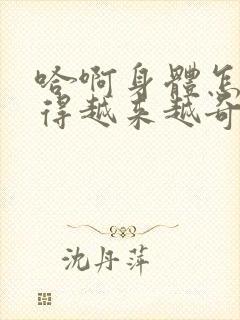 哈啊身體怎
得越来越奇
沈丹萍